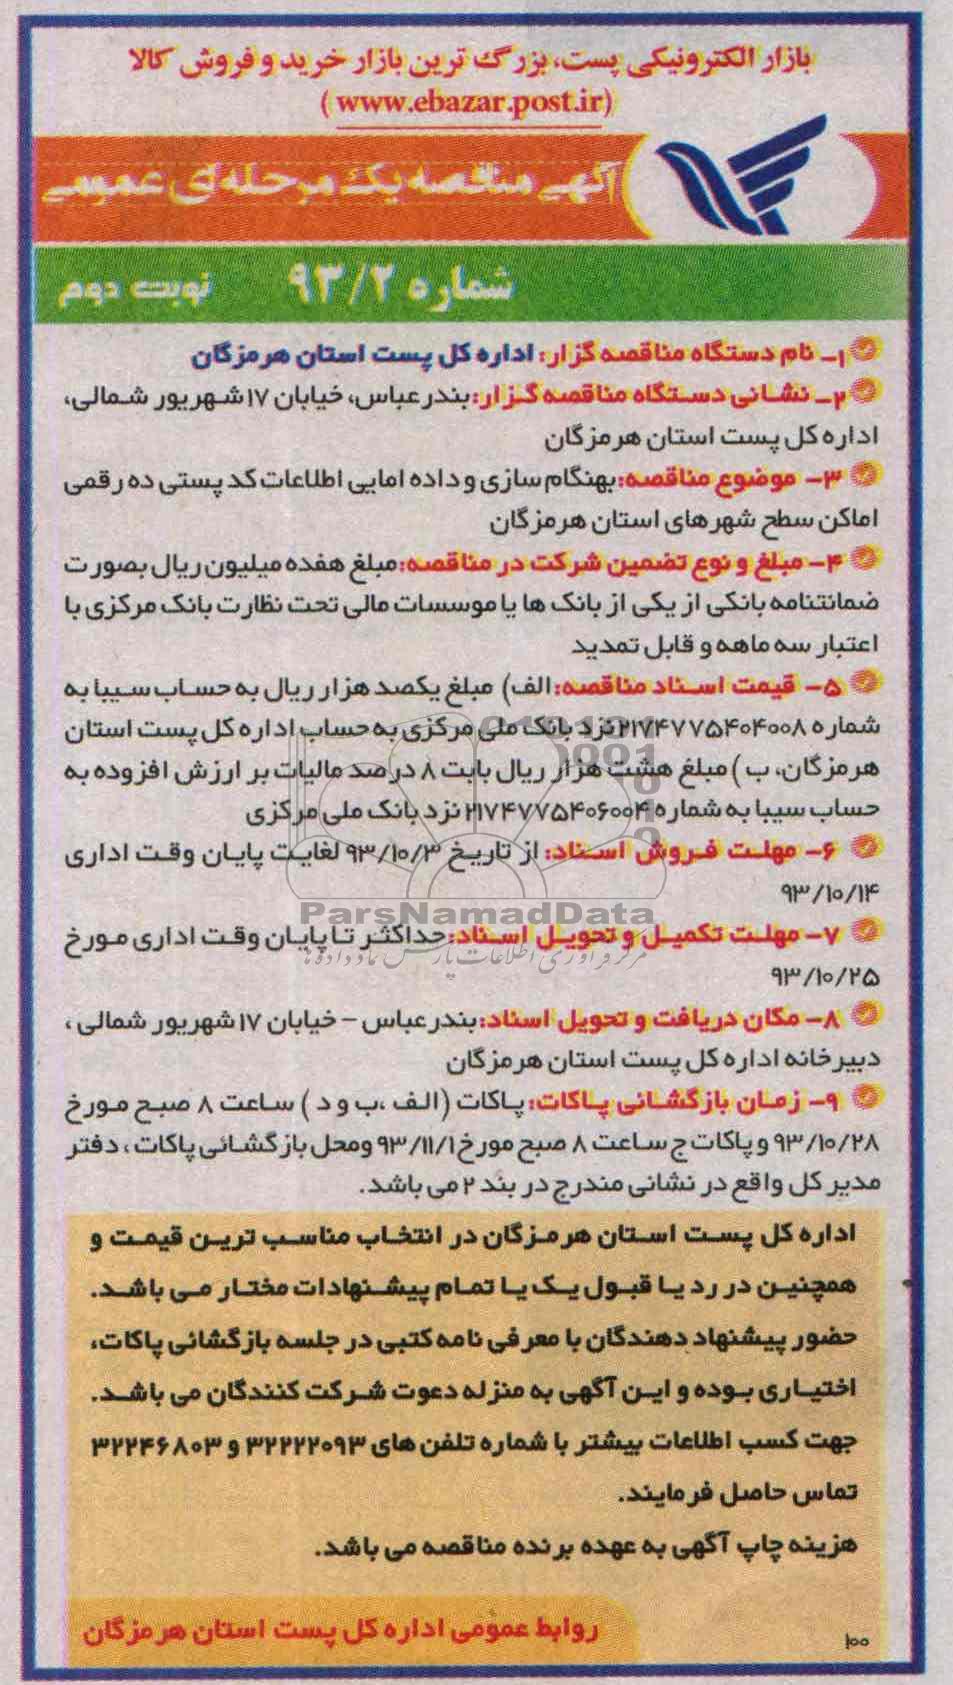 بازار الکترونیکی پست، بزرگ ترین بازار خرید و فروش کالا
(www.ebazar.post.ir)
آگهی مناقصه یک مرحله ای عمومی
شماره ۹۳/۲ نوبت دوم
۱- نام دستگاه مناقصه گزار: اداره کل پست استان هرمزگان
۲- نشانی دستگاه مناقصه گزار: بندرعباس، خیابان ۱۷ شهریور شمالی،
اداره کل پست استان هرمزگان
۳- موضوع مناقصه: بهنگام سازی و داده امایی اطلاعات کد پستی ده رقمی
اماکن سطح شهرهای استان هرمزگان
۴- مبلغ و نوع تضمین شرکت در مناقصه: مبلغ هفده میلیون ریال بصورت
ضمانتنامه بانکی از یکی از بانک ها یا موسسات مالی تحت نظارت بانک مرکزی با
اعتبار سه ماهه و قابل تمدید
۵- قیمت اسناد مناقصه: الف) مبلغ یکصد هزار ریال به حساب سیبا به
شماره ۲۱۷۴۷۷۵۴۰۴۰۰۸ نزد بانک ملی مرکزی به حساب اداره کل پست استان
هرمزگان، ب) مبلغ هشت هزار ریال بابت ۸ درصد مالیات بر ارزش افزوده به
حساب سیبا به شماره ۲۱۷۴۷۷۵۴۰۶۰۰۴ نزد بانک ملی مرکزی
۶- مهلت فروش اسناد: از تاریخ ۹۳/۱۰/۳ لغایت پایان وقت اداری
۹۳/۱۰/۱۴
ParsNamadData
۷- مهلت تکمیل و تحویل اسناد: حداکثر تا پایان وقت اداری مورخ
مرکز فرآوری اطلاعات پارس نماد داده ها
۹۳/۱۰/۲۵
۸- مکان دریافت و تحویل اسناد: بندرعباس – خیابان ۱۷ شهریور شمالی ،
دبیرخانه اداره کل پست استان هرمزگان
۹- زمان بازگشائی پاکات: پاکات (الف ،ب و د ) ساعت ۸ صبح مورخ
۹۳/۱۰/۲۸ و پاکات ج ساعت ۸ صبح مورخ ۹۳/۱۱/۱ ومحل بازگشائی پاکات ، دفتر
مدیر کل واقع در نشانی مندرج در بند ۲ می باشد.
اداره کل پست استان هرمزگان در انتخاب مناسب ترین قیمت و
همچنین در رد یا قبول یک یا تمام پیشنهادات مختار می باشد.
حضور پیشنهاد دهندگان با معرفی نامه کتبی در جلسه بازگشائی پاکات،
اختیاری بوده و این آگهی به منزله دعوت شرکت کنندگان می باشد.
جهت کسب اطلاعات بیشتر با شماره تلفن های ۳۲۲۲۲۰۹۳ و ۳۲۲۴۶۸۰۳
تماس حاصل فرمایند.
هزینه چاپ آگهی به عهده برنده مناقصه می باشد.
روابط عمومی اداره کل پست استان هرمزگان
۱۰۰